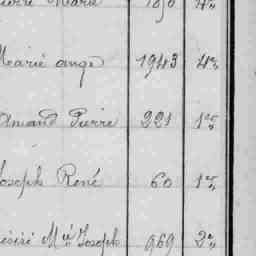 Pierre Marie 1890 4e
Marie ange 1943 4e
Amand Pierre 221 1er
Joseph René 60 1er
Désiré Mie Joseph 969 2e